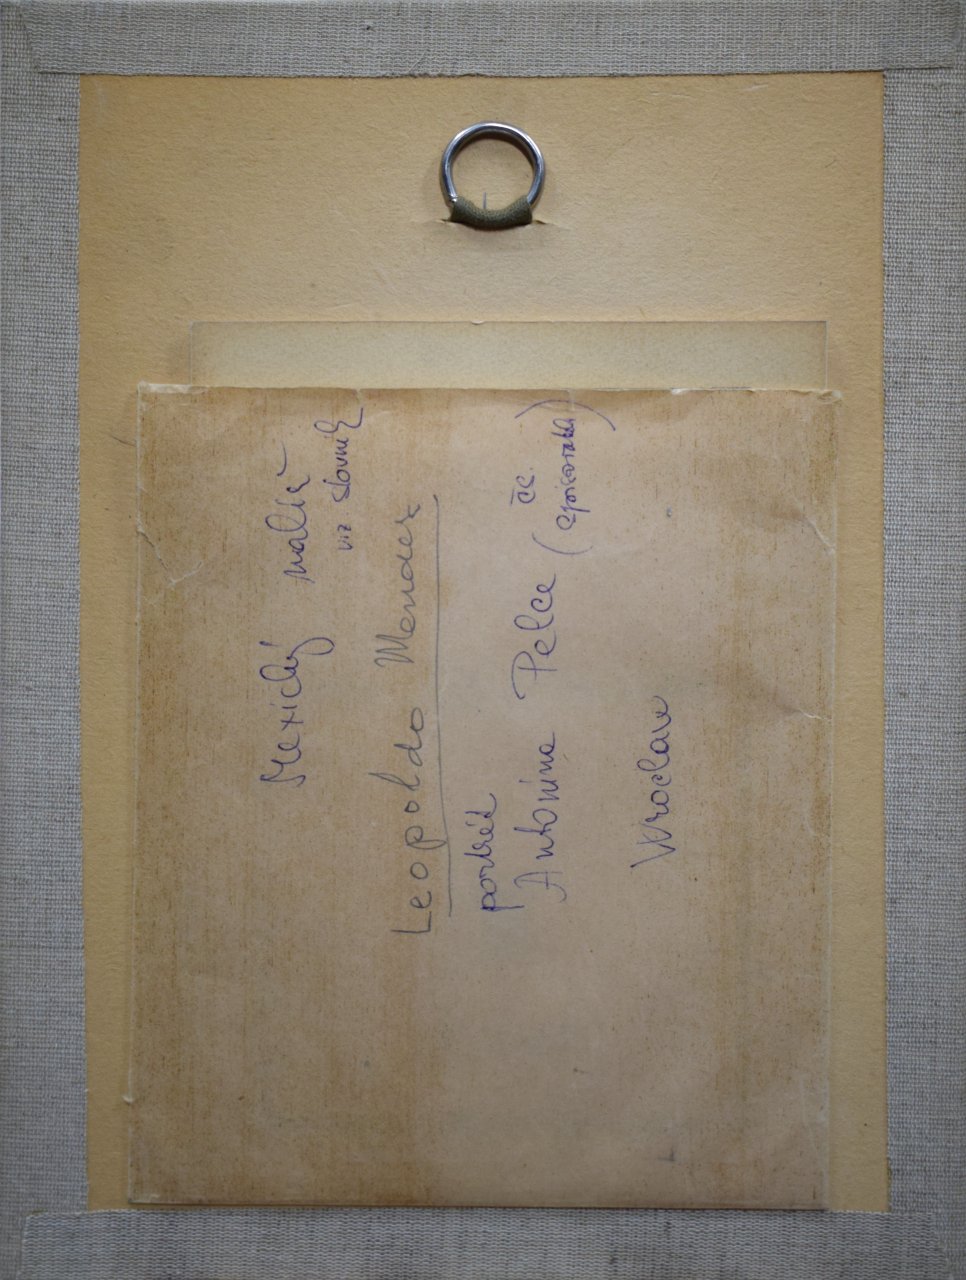 Mexický malíř
viz slovník
Leopoldo Mendez
portrét
Antonína Pelce (čs.
Wroclaw